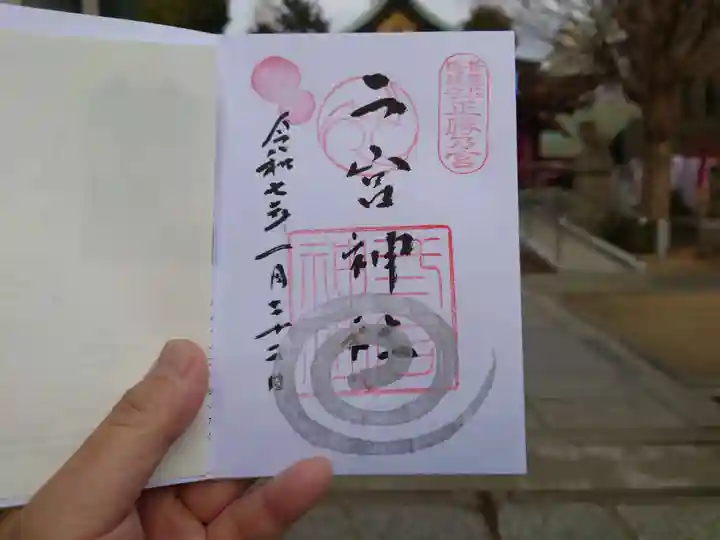 正勝乃宮
二宮神社
令和七年一月二十二日